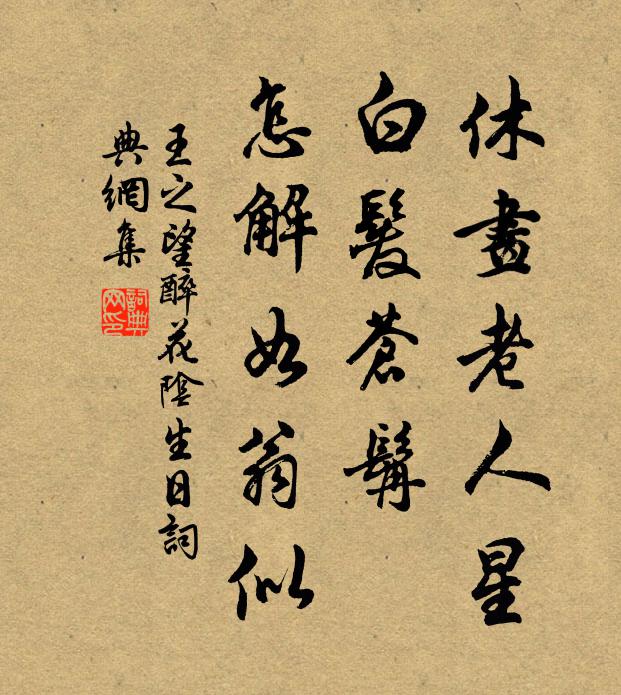 休畫老人星
白髮蒼髯
怎解如翁似
王之望醉花陰生日詞
典網集
詞典网印